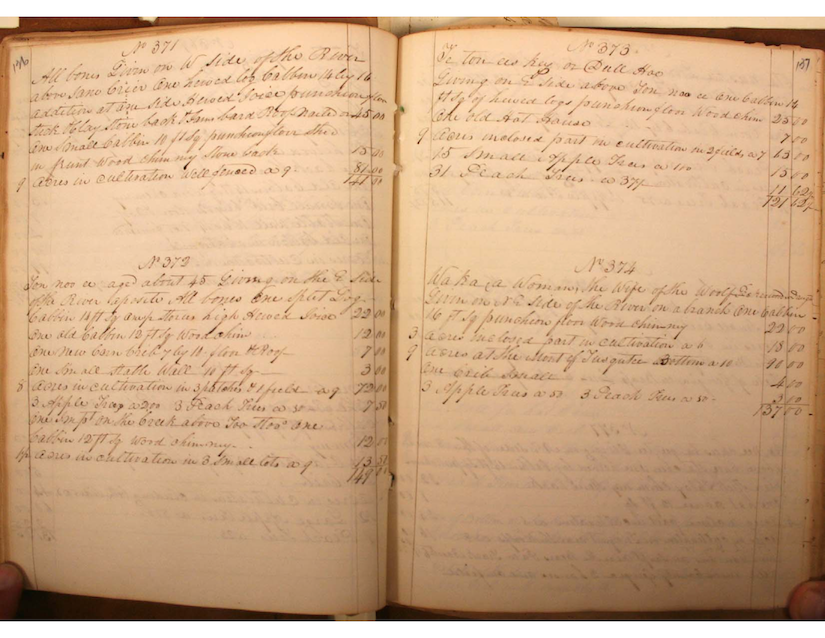 136
No 371
All bones Living on W Side of the River
above Sano Crier One hewed log Cabbin 14 by 16
addition at one side Hewed Joice puncheon floor
Stick & Clay Stone back & Jam board Roof Nailed on 45 00
One Small Cabbin 10 ft Sq puncheon floor Shed
in frunt Wood chimny Stone back 15 00
9 Acres in Cultivation Well fenced a 9 81 00
141 00
No 372
Ton noo ee aged about 45 Living on the E Side
of the River oposite All bones One Split Log
Cabbin 14 ft Sq high Hewed Joice 22 00
One old Cabbin 12 ft Sq Wood chim 12 00
One New Corn Crib 7 by 11 floor & Roof 7 00
One Small Stable Wall 10 ft Sq 3 00
8 Acres in cultivation in 3 patches & 1 field a 9 72 00
3 Apple Trees a 200 3 Peach Trees a 50 7 50
One Impt on the Creek above One
Cabbin 12 ft Sq Wood chimny 12 00
1½ Acres in Cultivation in 3 Small lots a 9 13 50
149 00
137
No 373
Te ton ees key or Dull Hoe
Living on E Side above Ton noo ee One Cabbin 14
ft Sq of hewed logs puncheon floor Wood chim 25 00
One old Hot House 7 00
9 Acres inclosed part in cultivation in 2 fields a 7 63 00
15 Small Apple Trees a 100 15 00
31 Peach Trees a 37½ 11 62½
121 62½
No 374
Wa ka (a Woman) the Wife of the Woolf
Living on N E Side of the River on a branch One Cabbin
16 ft Sq puncheon floor Wood chimny 22 00
3 Acres inclosed part in cultivation a 6 18 00
9 Acres at the Mouth of Tusquitee Bottom a 10 90 00
One Crib Small 4 00
3 Apple Trees a 50 3 Peach Trees a 50 3 00
137 00